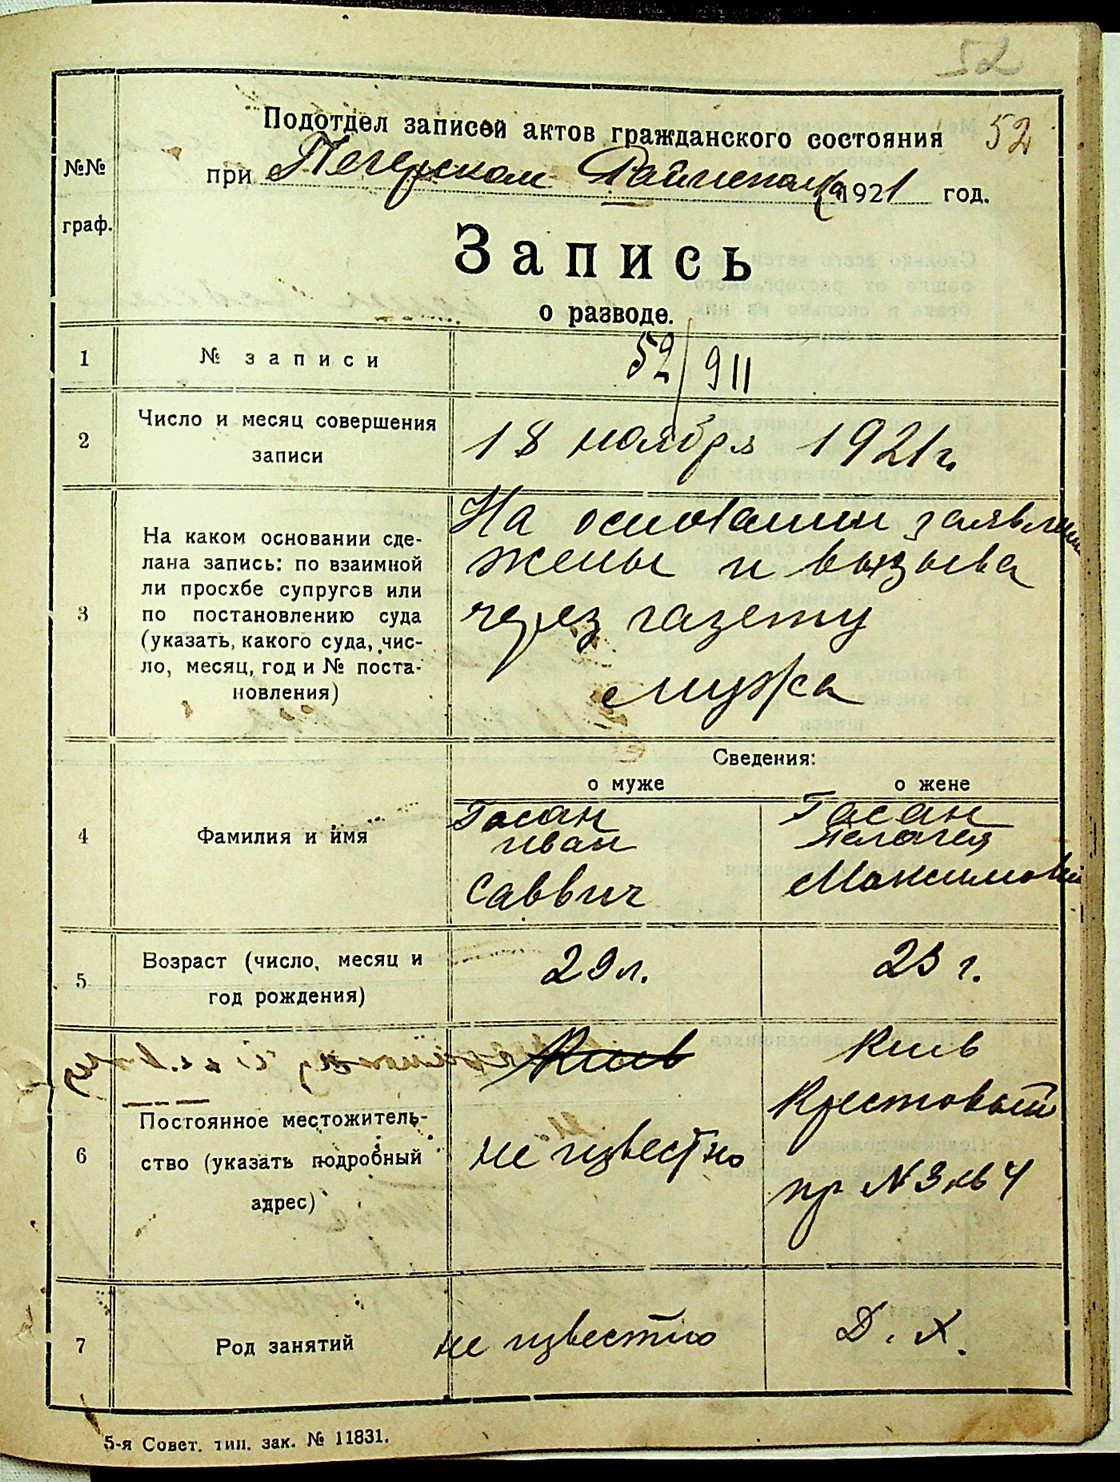 52
Подотдел записей актов гражданского состояния
52
при Печерском Райисполк 1921 год.
№№ граф.
Запись
о разводе.
1 № записи 52/911
2 Число и месяц совершения записи
18 ноября 1921 г.
3 На каком основании сде-
лана запись: по взаимной
ли просьбе супругов или
по постановлению суда
(указать, какого суда, чис-
ло, месяц, год и № поста-
новления)
На основании заявлени
жены и вызыва
через газету
мужа
Сведения:
о муже
о жене
4 Фамилия и имя
Гасан
Иван
Саввич
Гасан
Пелагея
Максимов
5 Возраст (число, месяц и
год рождения)
29 л.
23 г.
6 Постоянное местожитель-
ство (указать подробный
адрес)
Киев
не известно
Киев
Крестовый
пр № 3 кв 4
7 Род занятий
не известно
Д. Х.
5-я Совет. тип. зак. № 11831.